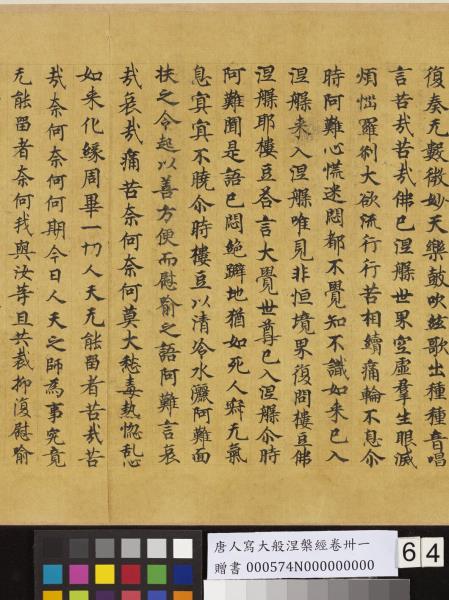 復奏无數微妙天樂鼓吹絃歌出種種音唱
言苦哉苦哉佛已涅槃世界空虛羣生眼滅
煩惱羅剎大欲流行行苦相續痛輪不息尒
時阿難心慌迷悶都不覺知不識如来已入
涅槃未入涅槃唯見非恒境界復問樓豆佛
涅槃耶樓豆荅言大覺世尊已入涅槃尒時
阿難聞是語已悶絶躃地猶如死人寂无氣
息㝠㝠不曉尒時樓豆以清冷水灑阿難面
扶之令起以善方便而慰喻之語阿難言哀
哉哀哉痛苦奈何奈何莫大愁毒熱惱乱心
如来化緣周畢一切人天无能留者苦哉苦
哉奈何奈何何期今日人天之師為事究竟
无能留者奈何我與汝等且共裁抑復慰喻
唐人寫大般涅槃經卷卅一
贈書 000574N000000000
64